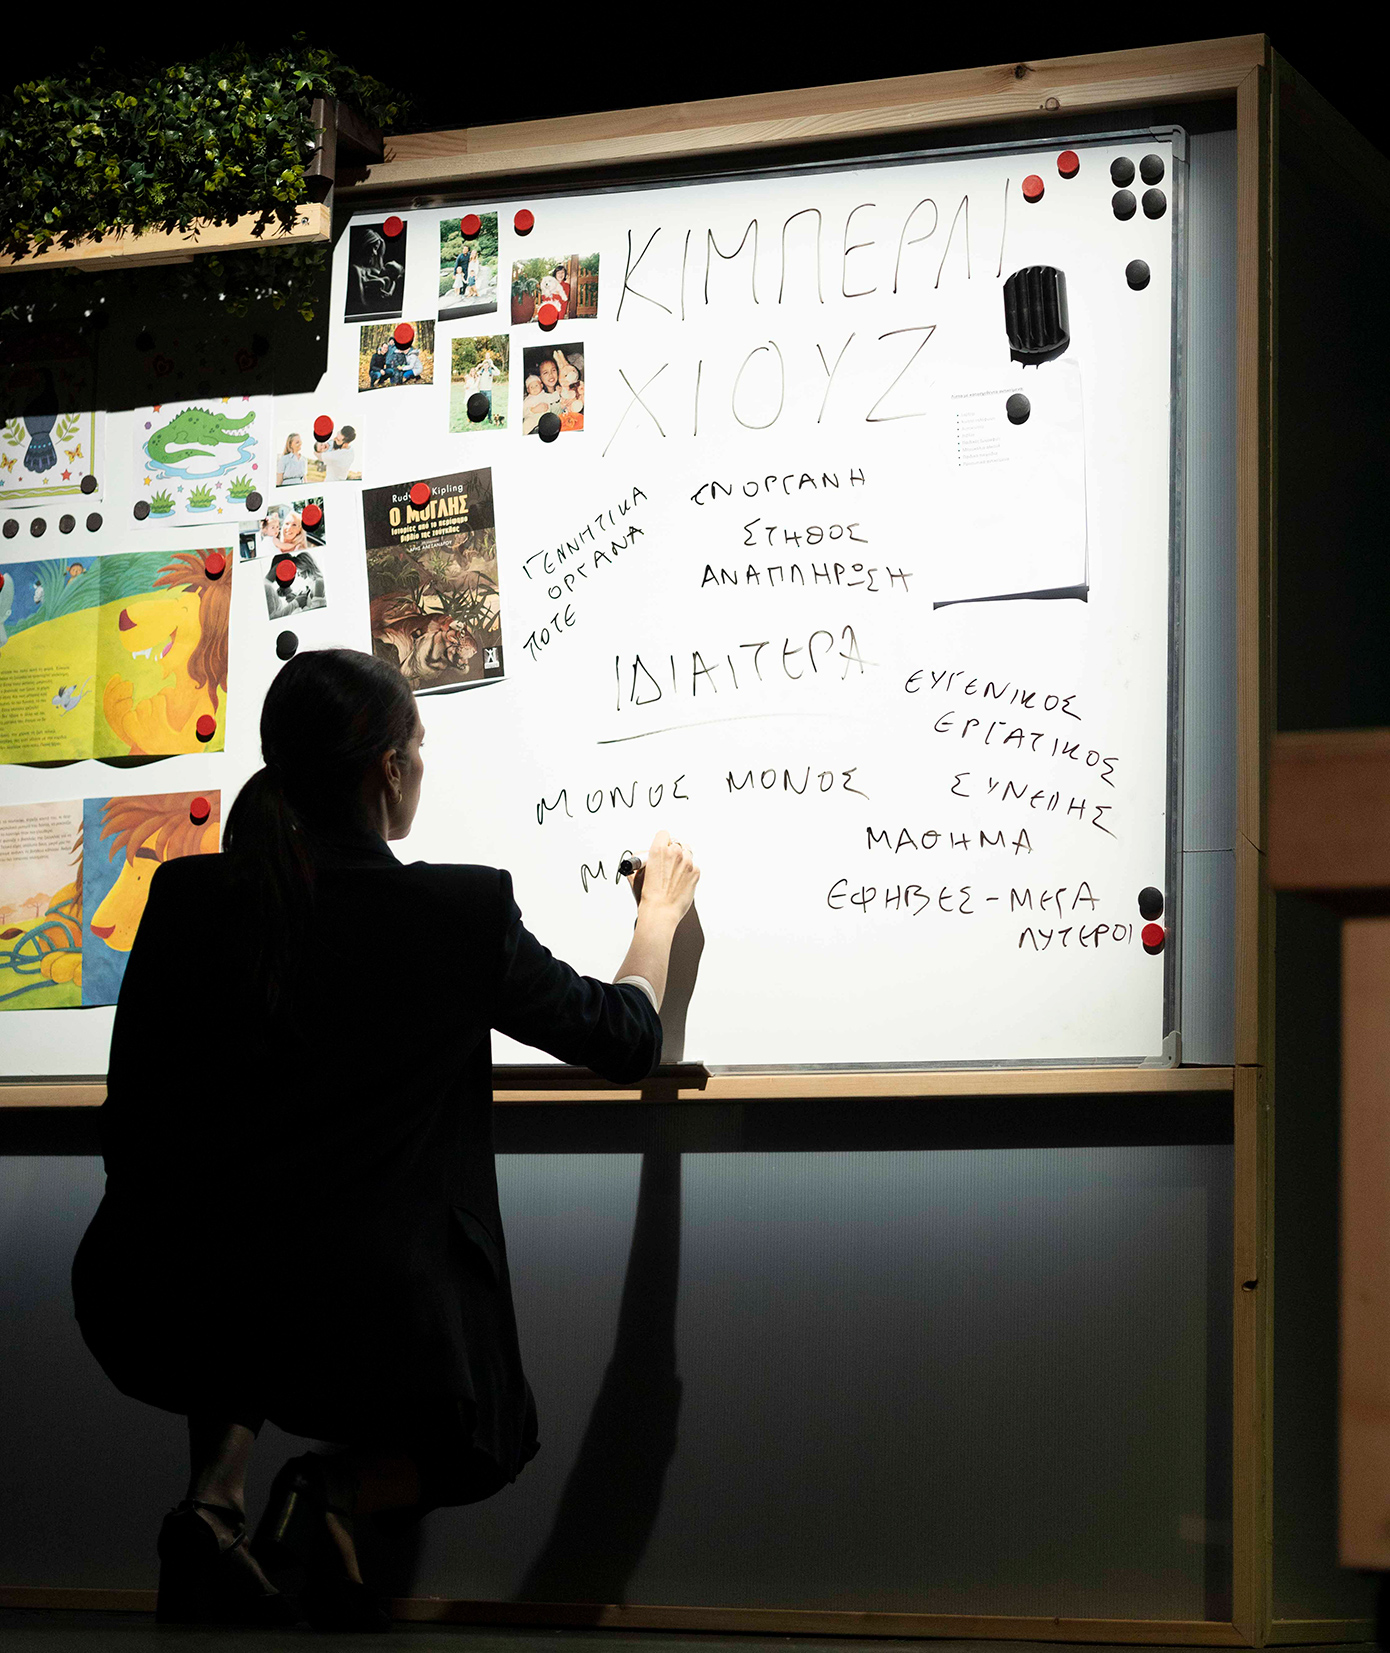 ΚΙΜΠΕΡΛΙ
ΧΙΟΥΖ
Rudyard Kipling
Ο ΜΟΓΛΗΣ
Ιστορίες από το περίφημο
βιβλίο της ζούγκλας
ΓΕΝΝΗΤΙΚΑ
ΟΡΓΑΝΑ
ΠΟΤΕ
ΕΝΟΡΓΑΝΗ
ΣΤΗΘΟΣ
ΑΝΑΠΛΗΡΩΣΗ
ΙΔΙΑΙΤΕΡΑ
ΕΥΓΕΝΙΚΟΣ
ΕΡΓΑΤΙΚΟΣ
ΣΥΝΕΠΗΣ
ΜΟΝΟΣ ΜΟΝΟΣ
ΜΑΘΗΜΑ
ΜΑ
ΕΦΗΒΕΣ - ΜΕΓΑ
ΛΥΤΕΡΟΙ